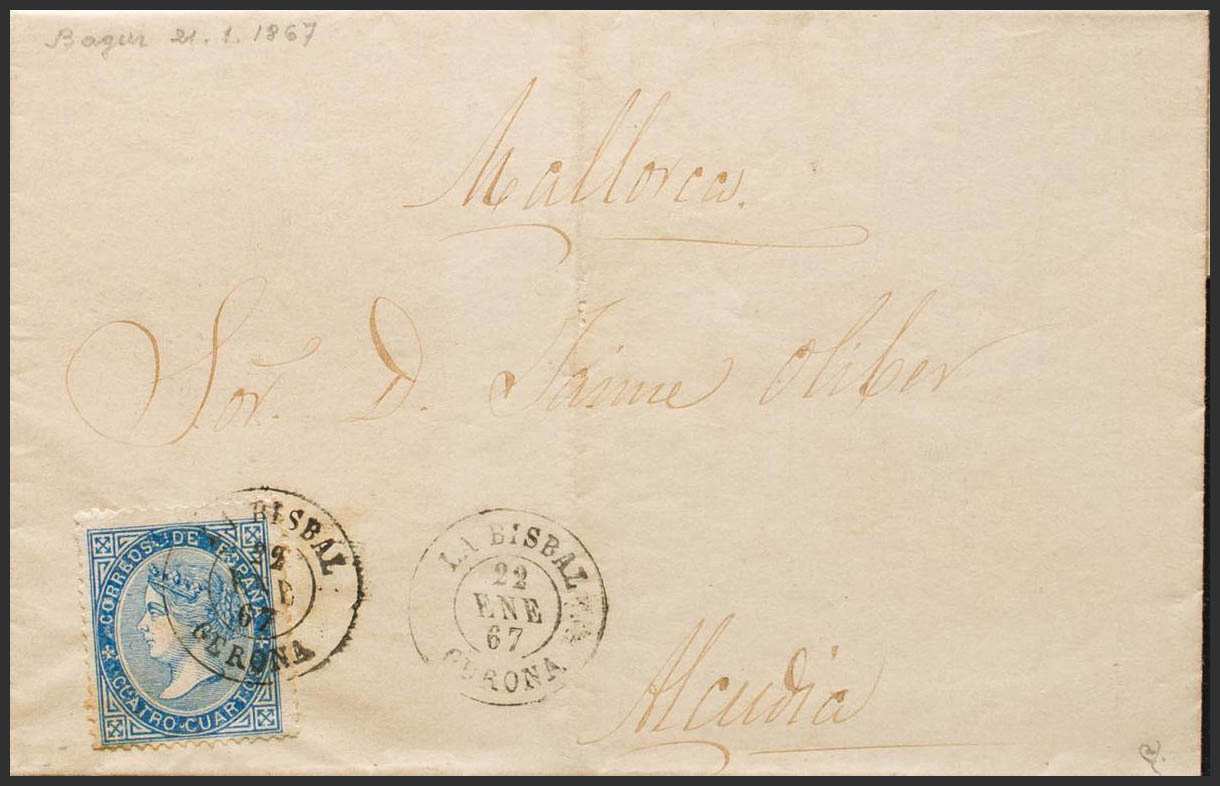 Bagur 21.1.1867
Mallorca.
Sor. D. Jaime Oliber
CORREOS DE ESPAÑA
CUATRO CUARTOS
LA BISBAL
22
ENE
67
GERONA
LA BISBAL
22
ENE
67
GERONA
Alcudia